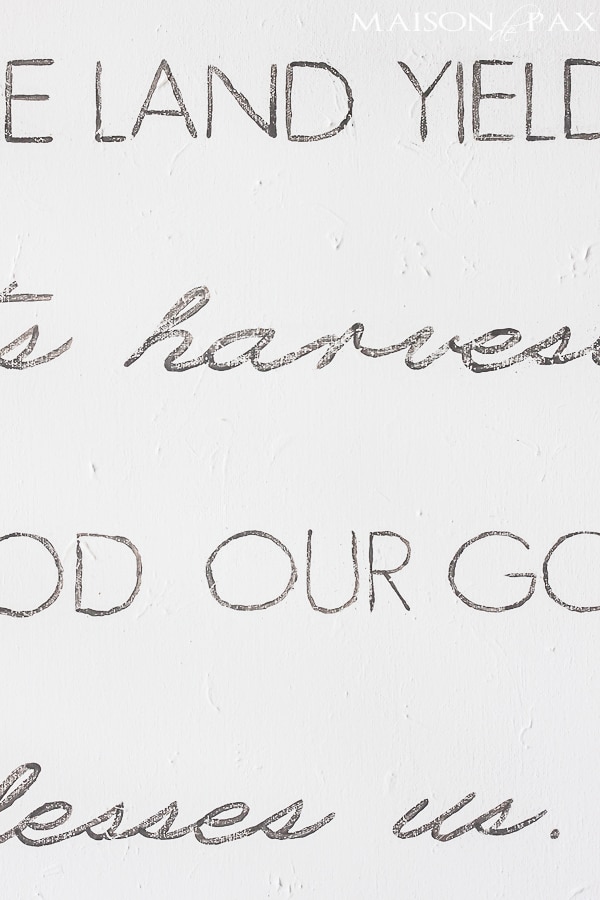 MAISON de PAX
E LAND YIELD
ts harves
OD OUR GO
lesses us.